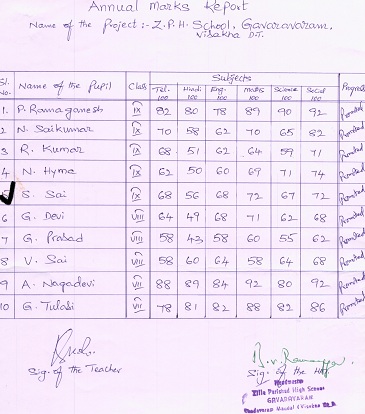 Annual Marks Report
Name of the Project :- Z.P.H School, Gavaravaram,
Visakha DT.
Sl. No. Name of the Pupil Class Subjects Progress
Tel. 100 Hindi 100 Eng. 100 Maths 100 Science 100 Social 100
1. P. Ramaganesh IX 92 80 78 89 90 92 Promoted
2 N. Saikumar IX 70 58 62 70 65 82 Promoted
3 R. Kumar IX 68 51 62 64 59 71 Promoted
4 N. Hyma IX 62 50 60 69 71 74 Promoted
5 S. Sai IX 68 56 68 72 67 72 Promoted
6 G. Devi VIII 64 49 68 71 62 68 Promoted
7 G. Prasad VIII 58 43 58 60 55 62 Promoted
8 V. Sai VII 58 60 64 58 64 68 Promoted
9 A. Nagadevi VII 88 89 84 92 80 92 Promoted
10 G. Tulasi VII 78 81 82 88 82 86 Promoted
Sig. of the Teacher
Sig. of the HM
Zilla Parishad High School
GAVARAVARAM